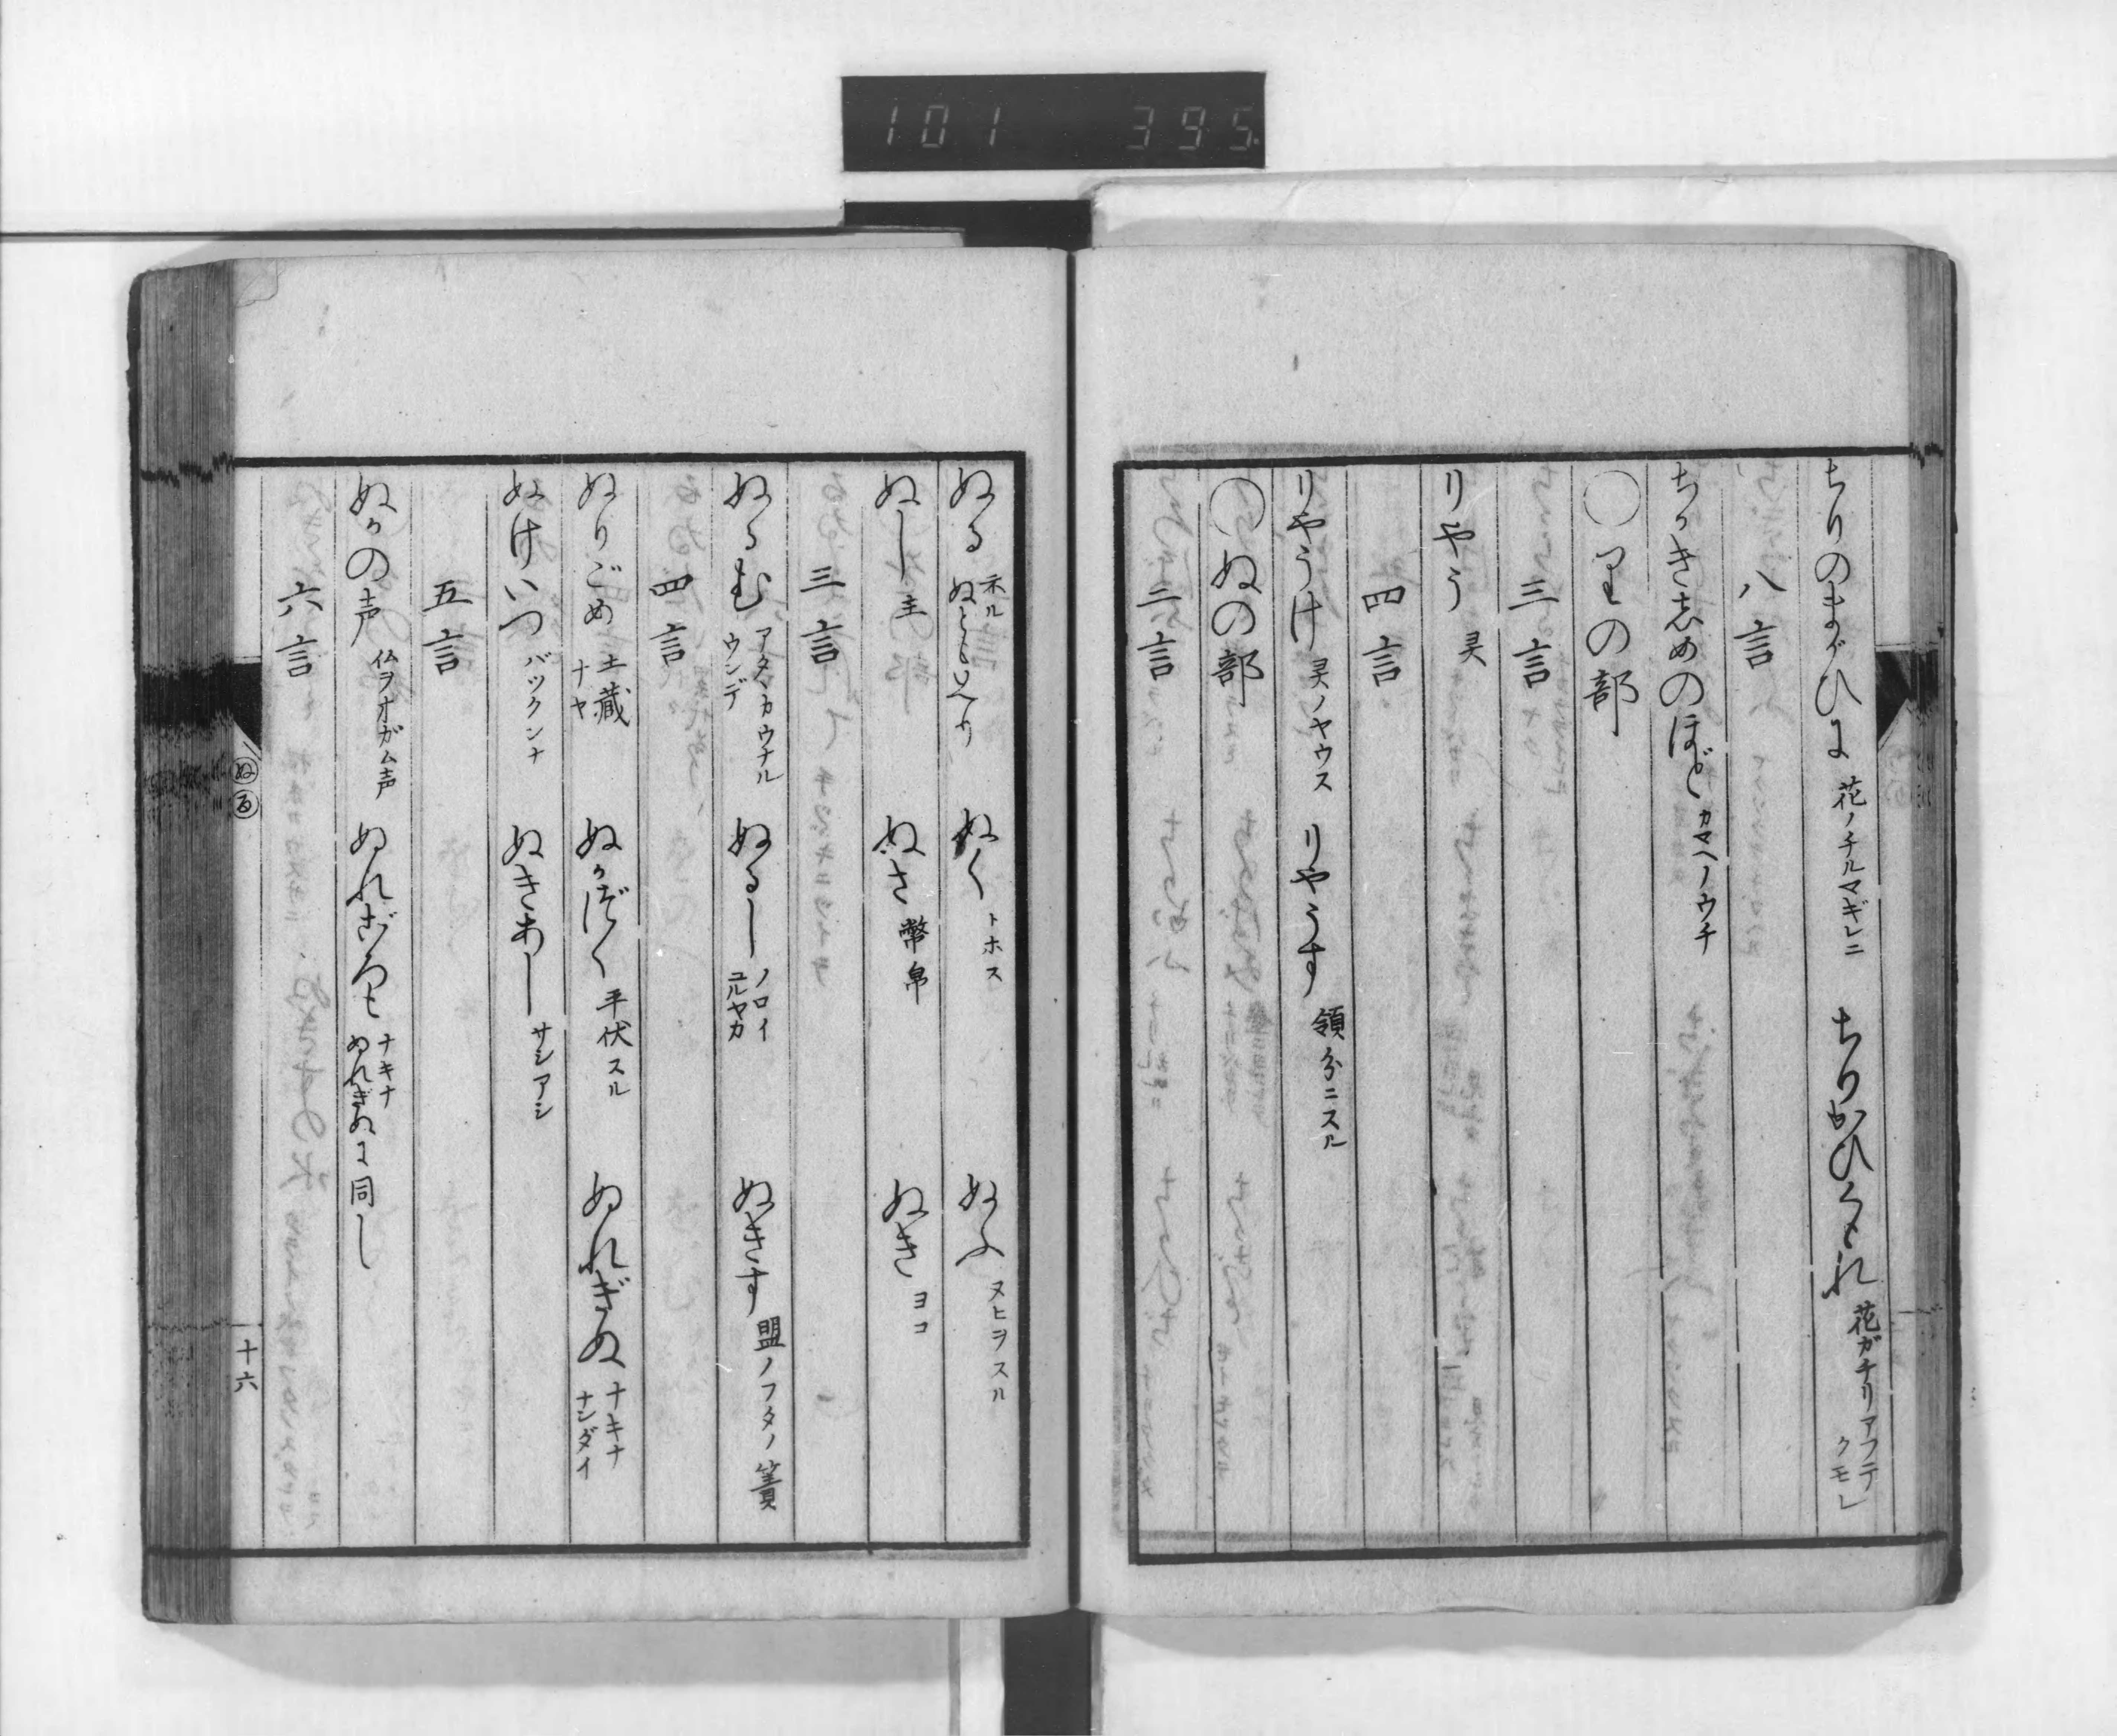 101 395
ちりのまがひに 花ノチルマギレニ ちりかひくもれ 花ガチリアフテクモレ
八言
ちかきしめのほど カマヘノウチ
○りの部
三言
りやう 㚑
四言
りやうけ 㚑ノヤウス りやうす 領分ニスル
○ぬの部
二言
ぬる ネル ぬくトホス ぬふ ヌヒヲスル
ぬし 主 ぬさ 幣帛 ぬき ヨコ
三言
ぬるむ アタヽカウナル ウンデ ぬるし ノロイ ユルヤカ ぬきす 盥ノフタノ簀
四言
ぬりごめ 土蔵 ナヤ ぬかづく 平伏スル ぬれぎぬ ナキナ ナンダイ
ぬけいつ バツクンナ ぬきあし サシアシ
五言
ぬかの声 仏ヲオガム声 ぬれごろも ナキナ ぬれぎぬに同し
六言
ぬ
十六